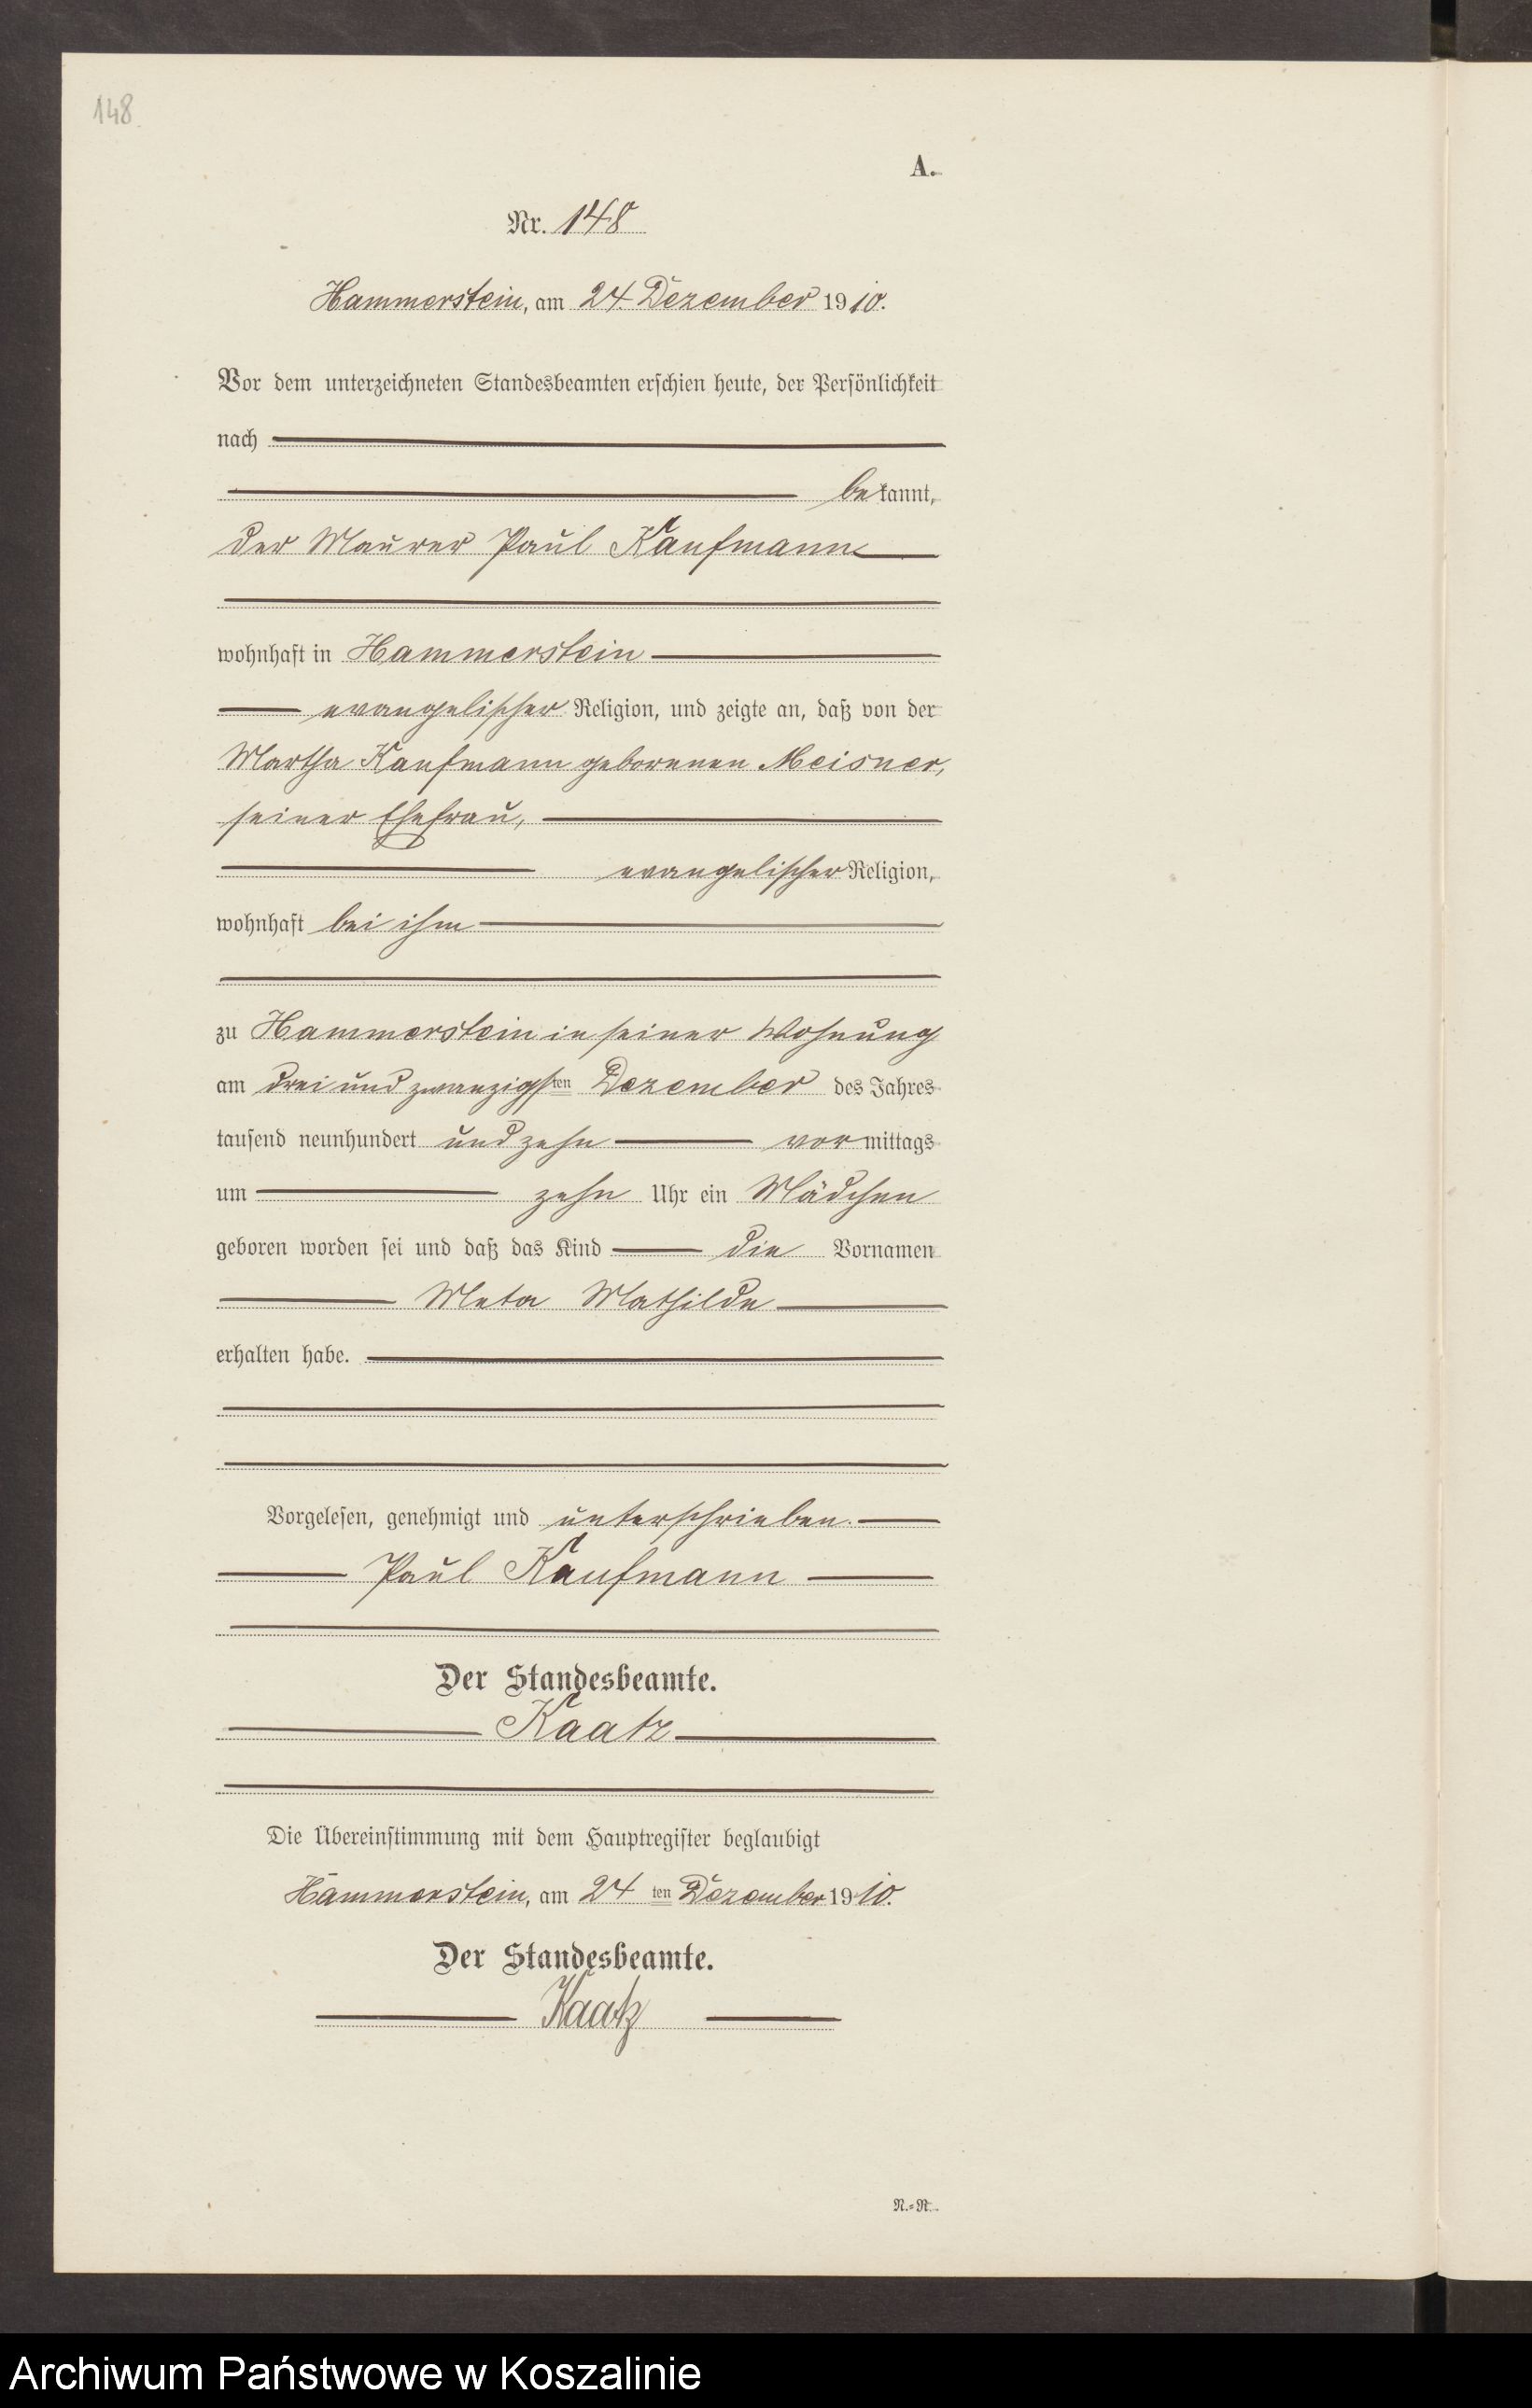 148
A.
Nr. 148
Hammerstein, am 24. Dezember 1910.
Vor dem unterzeichneten Standesbeamten erschien heute, der Persönlichkeit
nach
bekannt,
der Maurer Paul Kaufmann
wohnhaft in Hammerstein
evangelischer Religion, und zeigte an, daß von der
Martha Kaufmann geborenen Meisner,
seiner Ehefrau,
evangelischer Religion,
wohnhaft bei ihm
zu Hammerstein in seiner Wohnung
am drei und zwanzigsten Dezember des Jahres
tausend neunhundert und zehn vormittags
um zehn Uhr ein Mädchen
geboren worden sei und daß das Kind die Vornamen
Meta Mathilde
erhalten habe.
Vorgelesen, genehmigt und unterschrieben.
Paul Kaufmann
Der Standesbeamte.
Kaatz
Die Übereinstimmung mit dem Hauptregister beglaubigt
Hammerstein, am 24 ten Dezember 1910.
Der Standesbeamte.
Kaatz
N.=R.
Archiwum Państwowe w Koszalinie